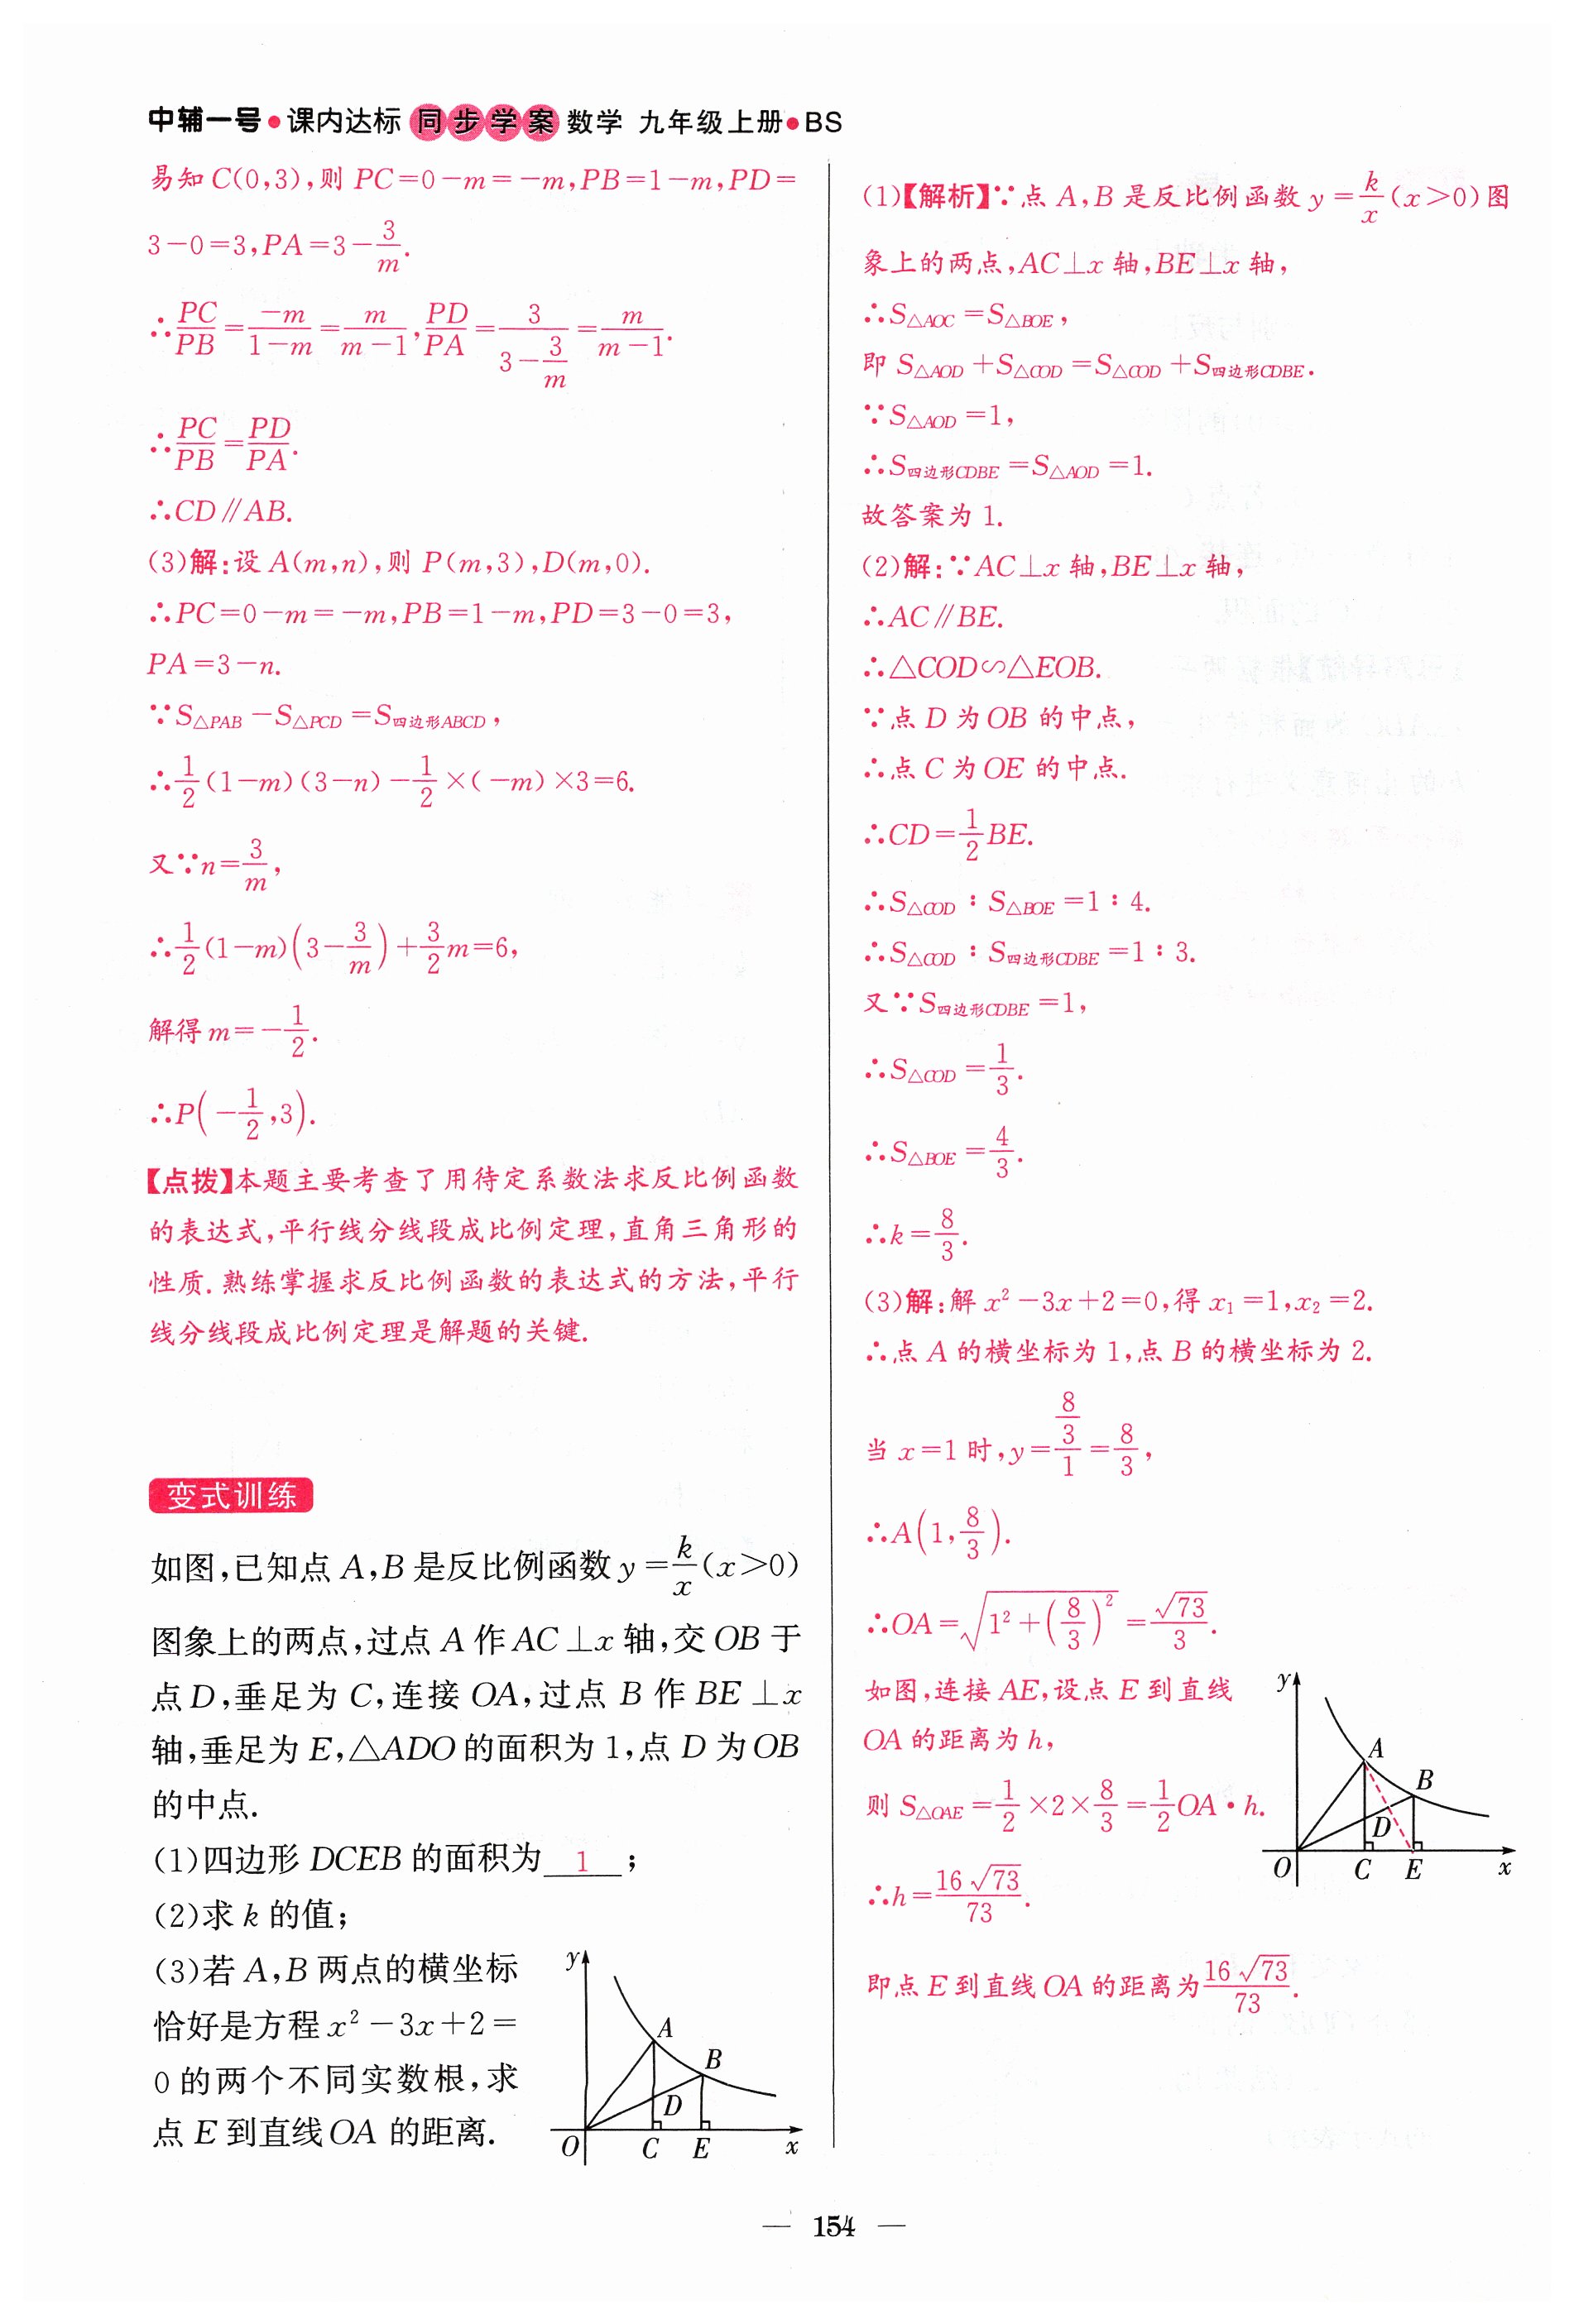 中辅一号●课内达标 同步学案 数学 九年级上册●BS
易知 C(0,3),则 PC=0-m=-m,PB=1-m,PD=
3-0=3,PA=3-3/m.
∴PC/PB=-m/(1-m)=m/(m-1),PD/PA=3/(3-3/m)=m/(m-1).
∴PC/PB=PD/PA.
∴CD∥AB.
(3)解:设 A(m,n),则 P(m,3),D(m,0).
∴PC=0-m=-m,PB=1-m,PD=3-0=3,
PA=3-n.
∵S△PAB-S△PCD=S四边形ABCD,
∴1/2(1-m)(3-n)-1/2×(-m)×3=6.
又∵n=3/m,
∴1/2(1-m)(3-3/m)+3/2m=6,
解得 m=-1/2.
∴P(-1/2,3).
【点拨】本题主要考查了用待定系数法求反比例函数
的表达式,平行线分线段成比例定理,直角三角形的
性质.熟练掌握求反比例函数的表达式的方法,平行
线分线段成比例定理是解题的关键.
变式训练
如图,已知点 A,B 是反比例函数 y=k/x(x>0)
图象上的两点,过点 A 作 AC⊥x 轴,交 OB 于
点 D,垂足为 C,连接 OA,过点 B 作 BE⊥x
轴,垂足为 E,△ADO 的面积为 1,点 D 为 OB
的中点.
(1)四边形 DCEB 的面积为 1 ;
(2)求 k 的值;
(3)若 A,B 两点的横坐标
恰好是方程 x²-3x+2=
0 的两个不同实数根,求
点 E 到直线 OA 的距离.
y
A
B
D
O C E x
(1)【解析】∵点 A,B 是反比例函数 y=k/x(x>0)图
象上的两点,AC⊥x 轴,BE⊥x 轴,
∴S△AOC=S△BOE,
即 S△AOD+S△COD=S△COD+S四边形CDBE.
∵S△AOD=1,
∴S四边形CDBE=S△AOD=1.
故答案为 1.
(2)解:∵AC⊥x 轴,BE⊥x 轴,
∴AC∥BE.
∴△COD∽△EOB.
∵点 D 为 OB 的中点,
∴点 C 为 OE 的中点.
∴CD=1/2BE.
∴S△COD:S△BOE=1:4.
∴S△COD:S四边形CDBE=1:3.
又∵S四边形CDBE=1,
∴S△COD=1/3.
∴S△BOE=4/3.
∴k=8/3.
(3)解:解 x²-3x+2=0,得 x₁=1,x₂=2.
∴点 A 的横坐标为 1,点 B 的横坐标为 2.
当 x=1 时,y=(8/3)/1=8/3,
∴A(1,8/3).
∴OA=√(1²+(8/3)²)=√73/3.
如图,连接 AE,设点 E 到直线
OA 的距离为 h,
则 S△OAE=1/2×2×8/3=1/2OA·h.
∴h=16√73/73.
即点 E 到直线 OA 的距离为16√73/73.
y
A
B
D
O C E x
— 154 —